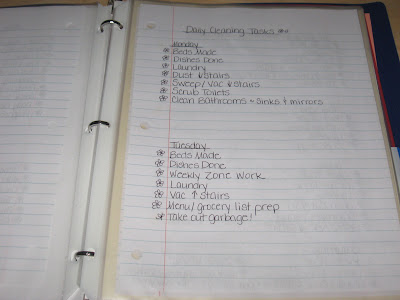 Daily Cleaning Tasks
Monday
Beds Made
Dishes Done
Laundry
Dust ↓ stairs
Sweep/Vac ↓ stairs
Scrub Toilets
Clean Bathrooms - Sinks & mirrors
Tuesday
Beds Made
Dishes Done
Weekly Zone Work
Laundry
Vac ↑ stairs
Menu/grocery list prep
Take out garbage!